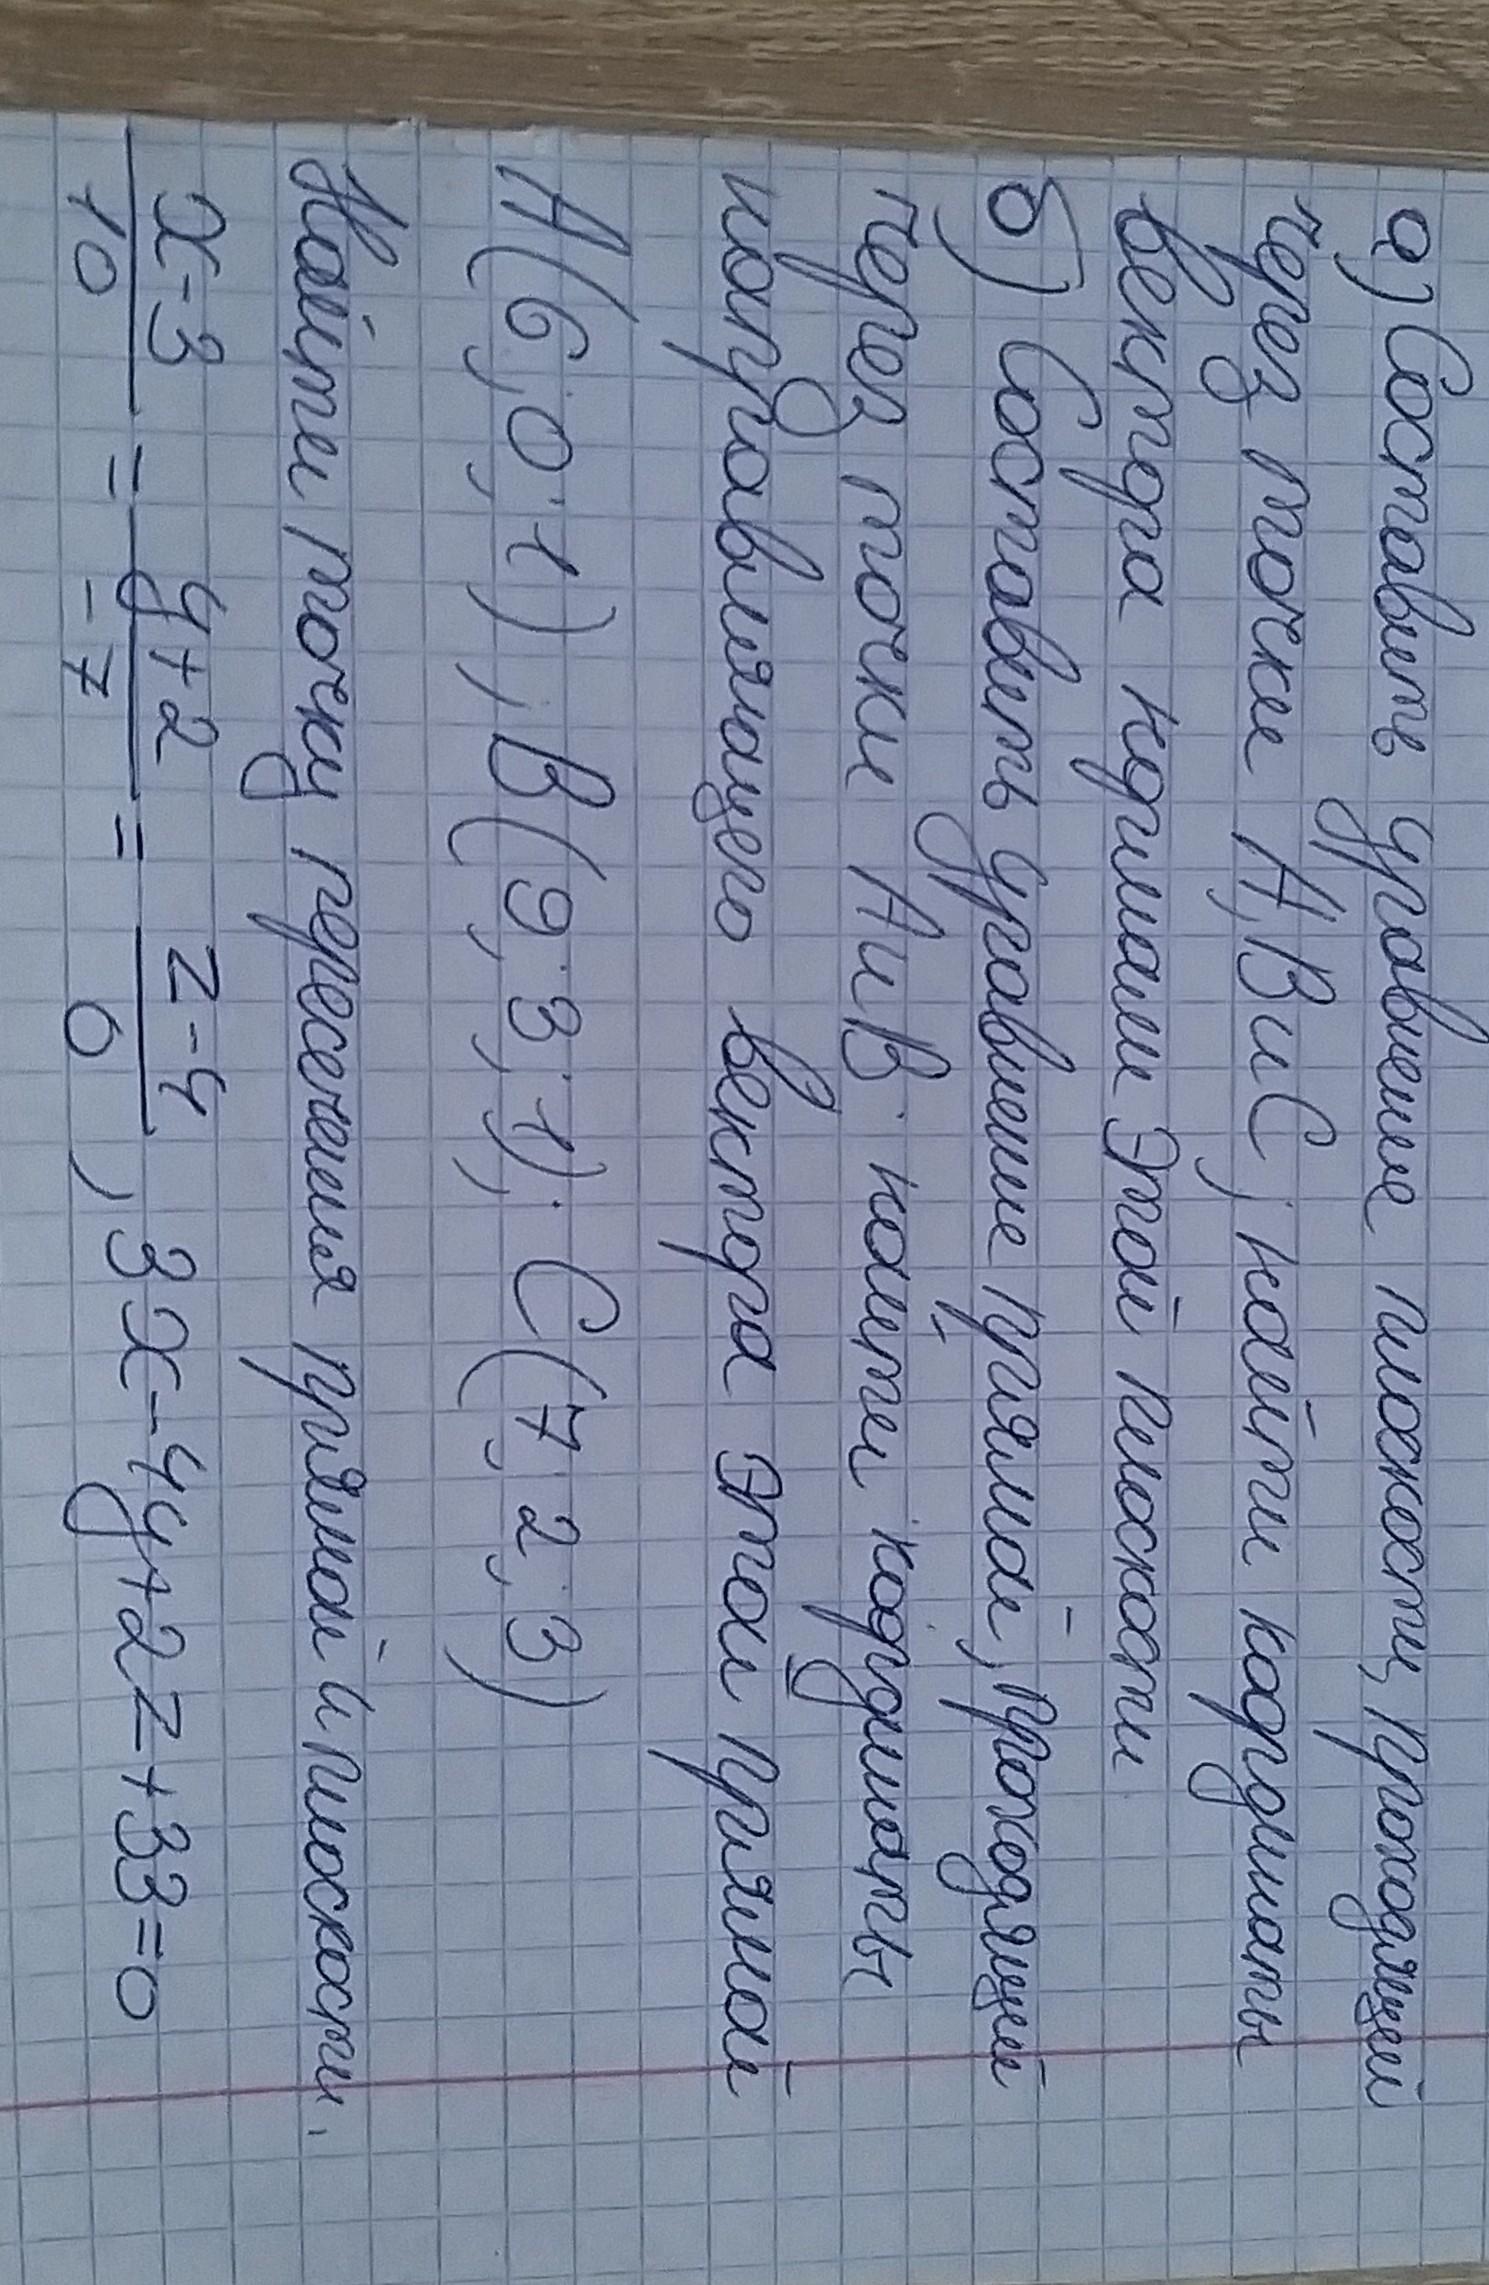 а) Составить уравнение плоскости, проходящей
через точки А, В и С; найти координаты
вектора нормали этой плоскости
б) Составить уравнение прямой, проходящей
через точки А и В; найти координаты
направляющего вектора этой прямой
А(6; 0; 1), В(9; 3; 1); С(7; 2; 3)
Найти точку пересечения прямой и плоскости.
x-3/10 = y+2/-7 = z-4/0, 3x-4y+2z+33=0